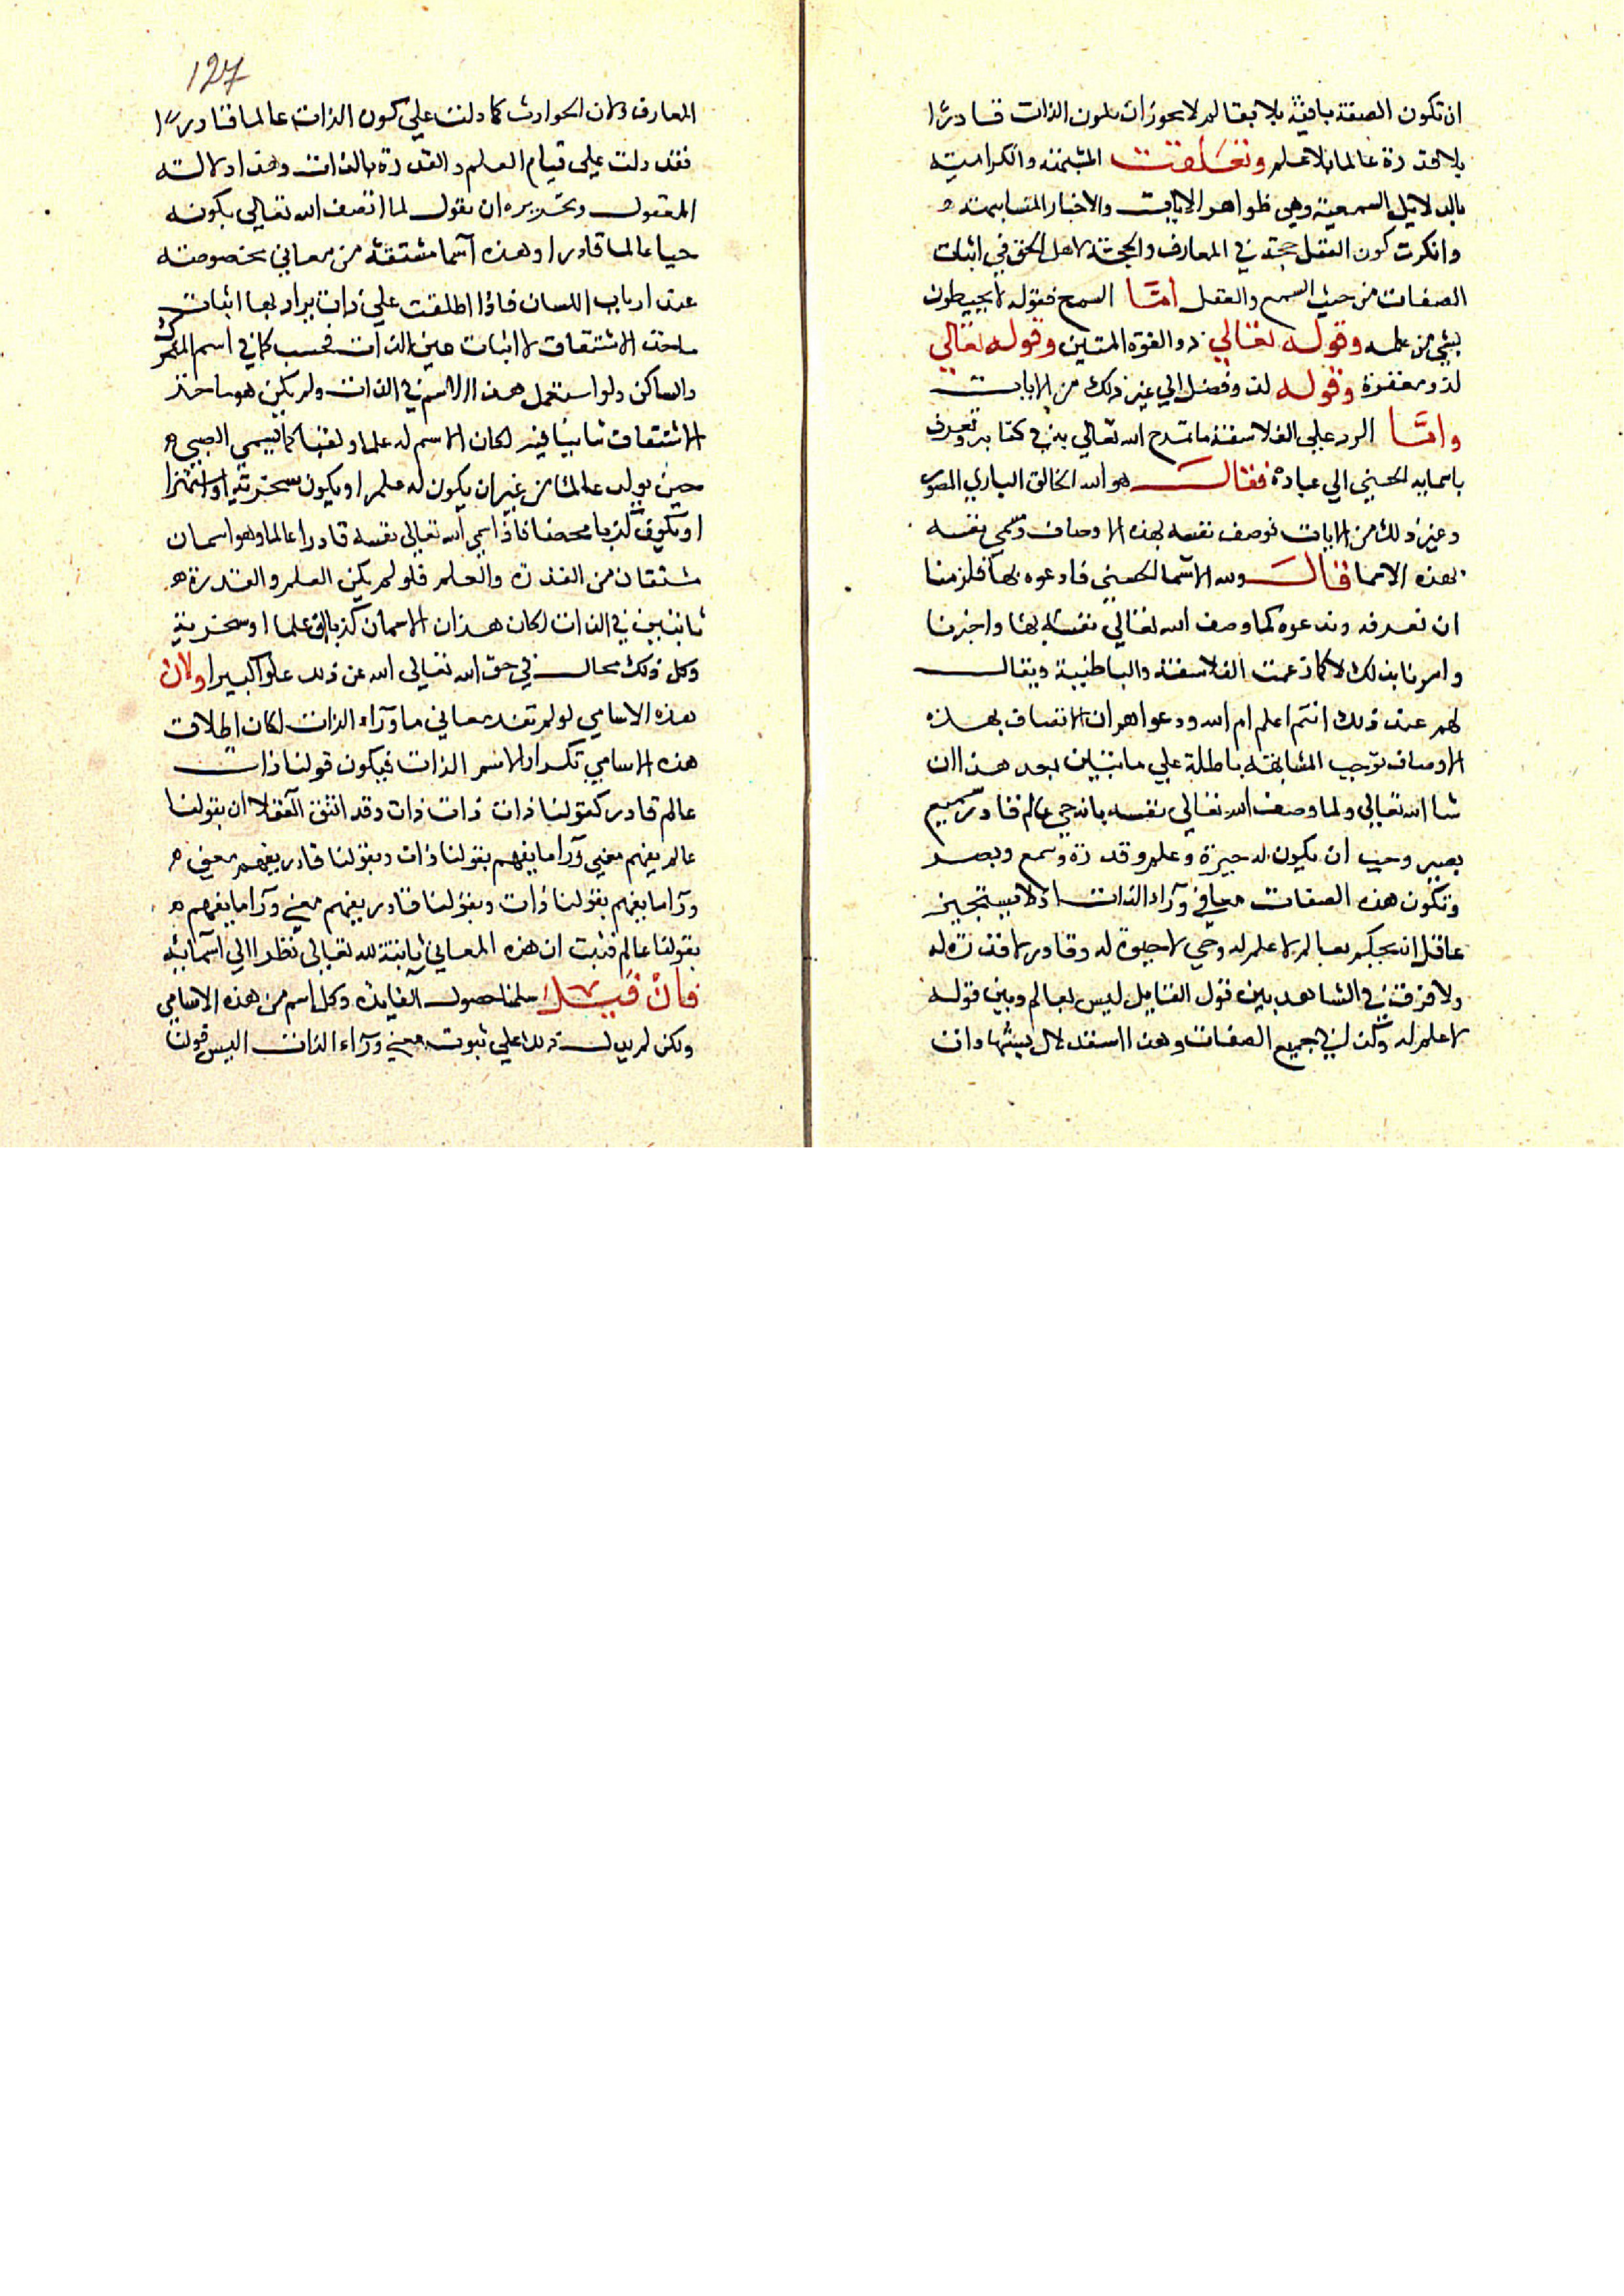 ان تكون الصفة باقية بلا بقا لم لا يجوز ان يكون الذات قادرا
بلا قدرة عالما بلا علم وتعلقت المشبهة والكرامية
بالدلايل السمعية وهي ظواهر الايات والاخبار المتشابهة
وانكرت كون العقل حجة في المعارف والحجة لاهل الحق في اثبات
الصفات من حيث السمع والعقل امّا السمع فقوله لا يحيطون
بشي من علمه وقوله تعالي ذو القوة المتين وقوله تعالي
لذو مغفرة وقوله لذو فضل الي غير ذلك من الايات
وامّا الرد علي الفلاسفة ما تمدح الله تعالي به في كتابه وتعرف
باسمايه الحسني الي عباده فقال هو الله الخالق الباري المصور
وغير ذلك من الايات فوصف نفسه بهذه الاوصاف وسمي نفسه
بهذه الاسما فقال ولله الاسما الحسني فادعوه بها فلزمنا
ان نعرفه وندعوه كما وصف الله تعالي نفسه بها واخبرنا
وامرنا بذلك لا كما زعمت الفلاسفة والباطنية ويقال
لهم عند ذلك انتم اعلم ام الله ودعواهم ان الاتصاف بهذه
الاوصاف توجب المشابهة باطلة علي ما نبين بعد هذا ان
شا الله تعالي ولما وصف الله تعالي نفسه بانه حي عالم قادر سميع
بصير وجب ان يكون له حيوة وعلم وقدرة وسمع وبصر
وتكون هذه الصفات معاني ورآء الذات اذ لا يستجيز
عاقل ان يحكم بعالم لا علم له وحي لا حيوة له وقادر لا قدرة له
ولا فرق في الشاهد بين قول القايل ليس بعالم وبين قوله
لا علم له وكذلك في جميع الصفات وهذا استدلال بشهادات
127
المعارف ولان الحوادث كما دلت علي كون الذات عالما قادرا
فقد دلت علي قيام العلم والقدرة بالذات وهذا دلالة
المعقول وتحريره ان نقول لما اتصف الله تعالي بكونه
حيا عالما قادرا وهذه اسما مشتقة من معاني مخصوصة
عند ارباب اللسان فاذا اطلقت علي ذات يراد بها اثبات
ماخذ الاشتقاق لا اثبات عين الذات فحسب كما في اسم المتحرك
والساكن ولو استعمل هذا الاسم في الذات ولم يكن هو ماخذ
الاشتقاق ثابتا فيه لكان الاسم له علما او لقبا كما يسمي الصبي
حين يولد عالما من غير ان يكون له علم او يكون سخرية او استهزا
او يكون كذبا محضا فاذا سمي الله تعالي نفسه قادرا عالما وهو اسمان
مشتقان من القدرة والعلم فلو لم يكن العلم والقدرة
ثابتين في الذات لكان هذان الاسمان كذبا او علما او سخرية
وكل ذلك محال في حق الله تعالي الله عن ذلك علوا كبيرا ولان
هذه الاسامي لو لم تفد معاني ما ورآء الذات لكان اطلاق
هذه الاسامي تكرارا لاسم الذات فيكون قولنا ذات
عالم قادر كقولنا ذات ذات ذات وقد اتفق العقلا ان بقولنا
عالم يفهم معني ورآ ما يفهم بقولنا ذات وبقولنا قادر يفهم معني
ورآ ما يفهم بقولنا ذات وبقولنا قادر يفهم معني ورآ ما يفهم
بقولنا عالم فثبت ان هذه المعاني ثابتة لله تعالي نظرا الي اسمايه
فان قيل سلمنا حصول الفايدة وكل اسم من هذه الاسامي
ولكن لم يدل ذلك علي ثبوت معني ورآء الذات اليس قولنا